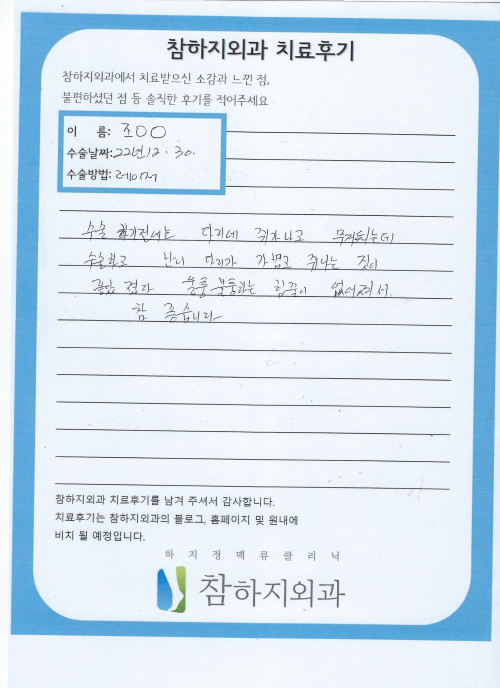 참하지외과 치료후기
참하지외과에서 치료받으신 소감과 느낀 점,
불편하셨던 점 등 솔직한 후기를 적어주세요
이 름: 조○○
수술날짜: 22년 12. 30.
수술방법: 레이저
수술 하기전에는 다리에 쥐가나고 무거웠는데
수술하고 난니 다리가 가볍고 쥐나는 것이
울퉁 불퉁하는 힘줄이 없어져서
참 좋습니다
참하지외과 치료후기를 남겨 주셔서 감사합니다.
치료후기는 참하지외과의 블로그, 홈페이지 및 원내에
비치 될 예정입니다.
하지정맥류클리닉
참하지외과